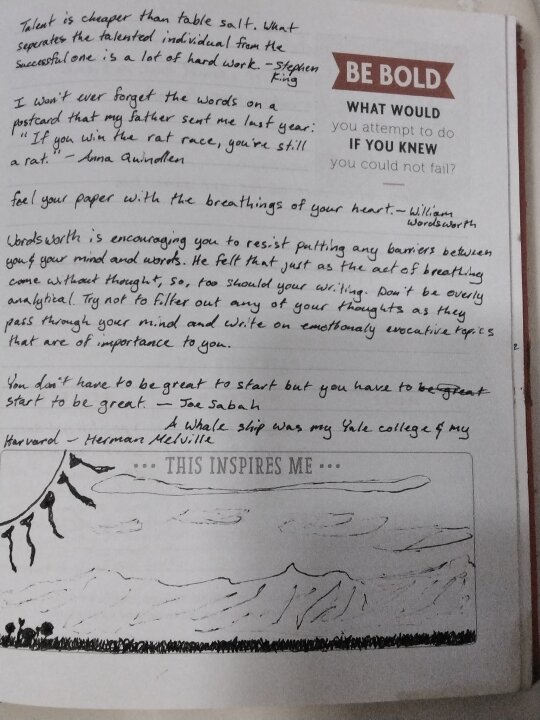 Talent is cheaper than table salt. What
seperates the talented individual from the
successful one is a lot of hard work. - Stephen
King
BE BOLD
WHAT WOULD
you attempt to do
IF YOU KNEW
you could not fail?
I won't ever forget the words on a
postcard that my father sent me last year:
"If you win the rat race, you're still
a rat." - Anna Quindlen
feel your paper with the breathings of your heart. - William
Wordsworth
Wordsworth is encouraging you to resist putting any barriers between
you & your mind and words. He felt that just as the act of breathing
come without thought, so, too should your writing. Don't be overly
analytical. Try not to filter out any of your thoughts as they
pass through your mind and write on emotionaly evocative topics
that are of importance to you.
You don't have to be great to start but you have to be great
start to be great. - Joe Sabah
A whale ship was my Yale college & my
Harvard - Herman Melville
••• THIS INSPIRES ME •••
2